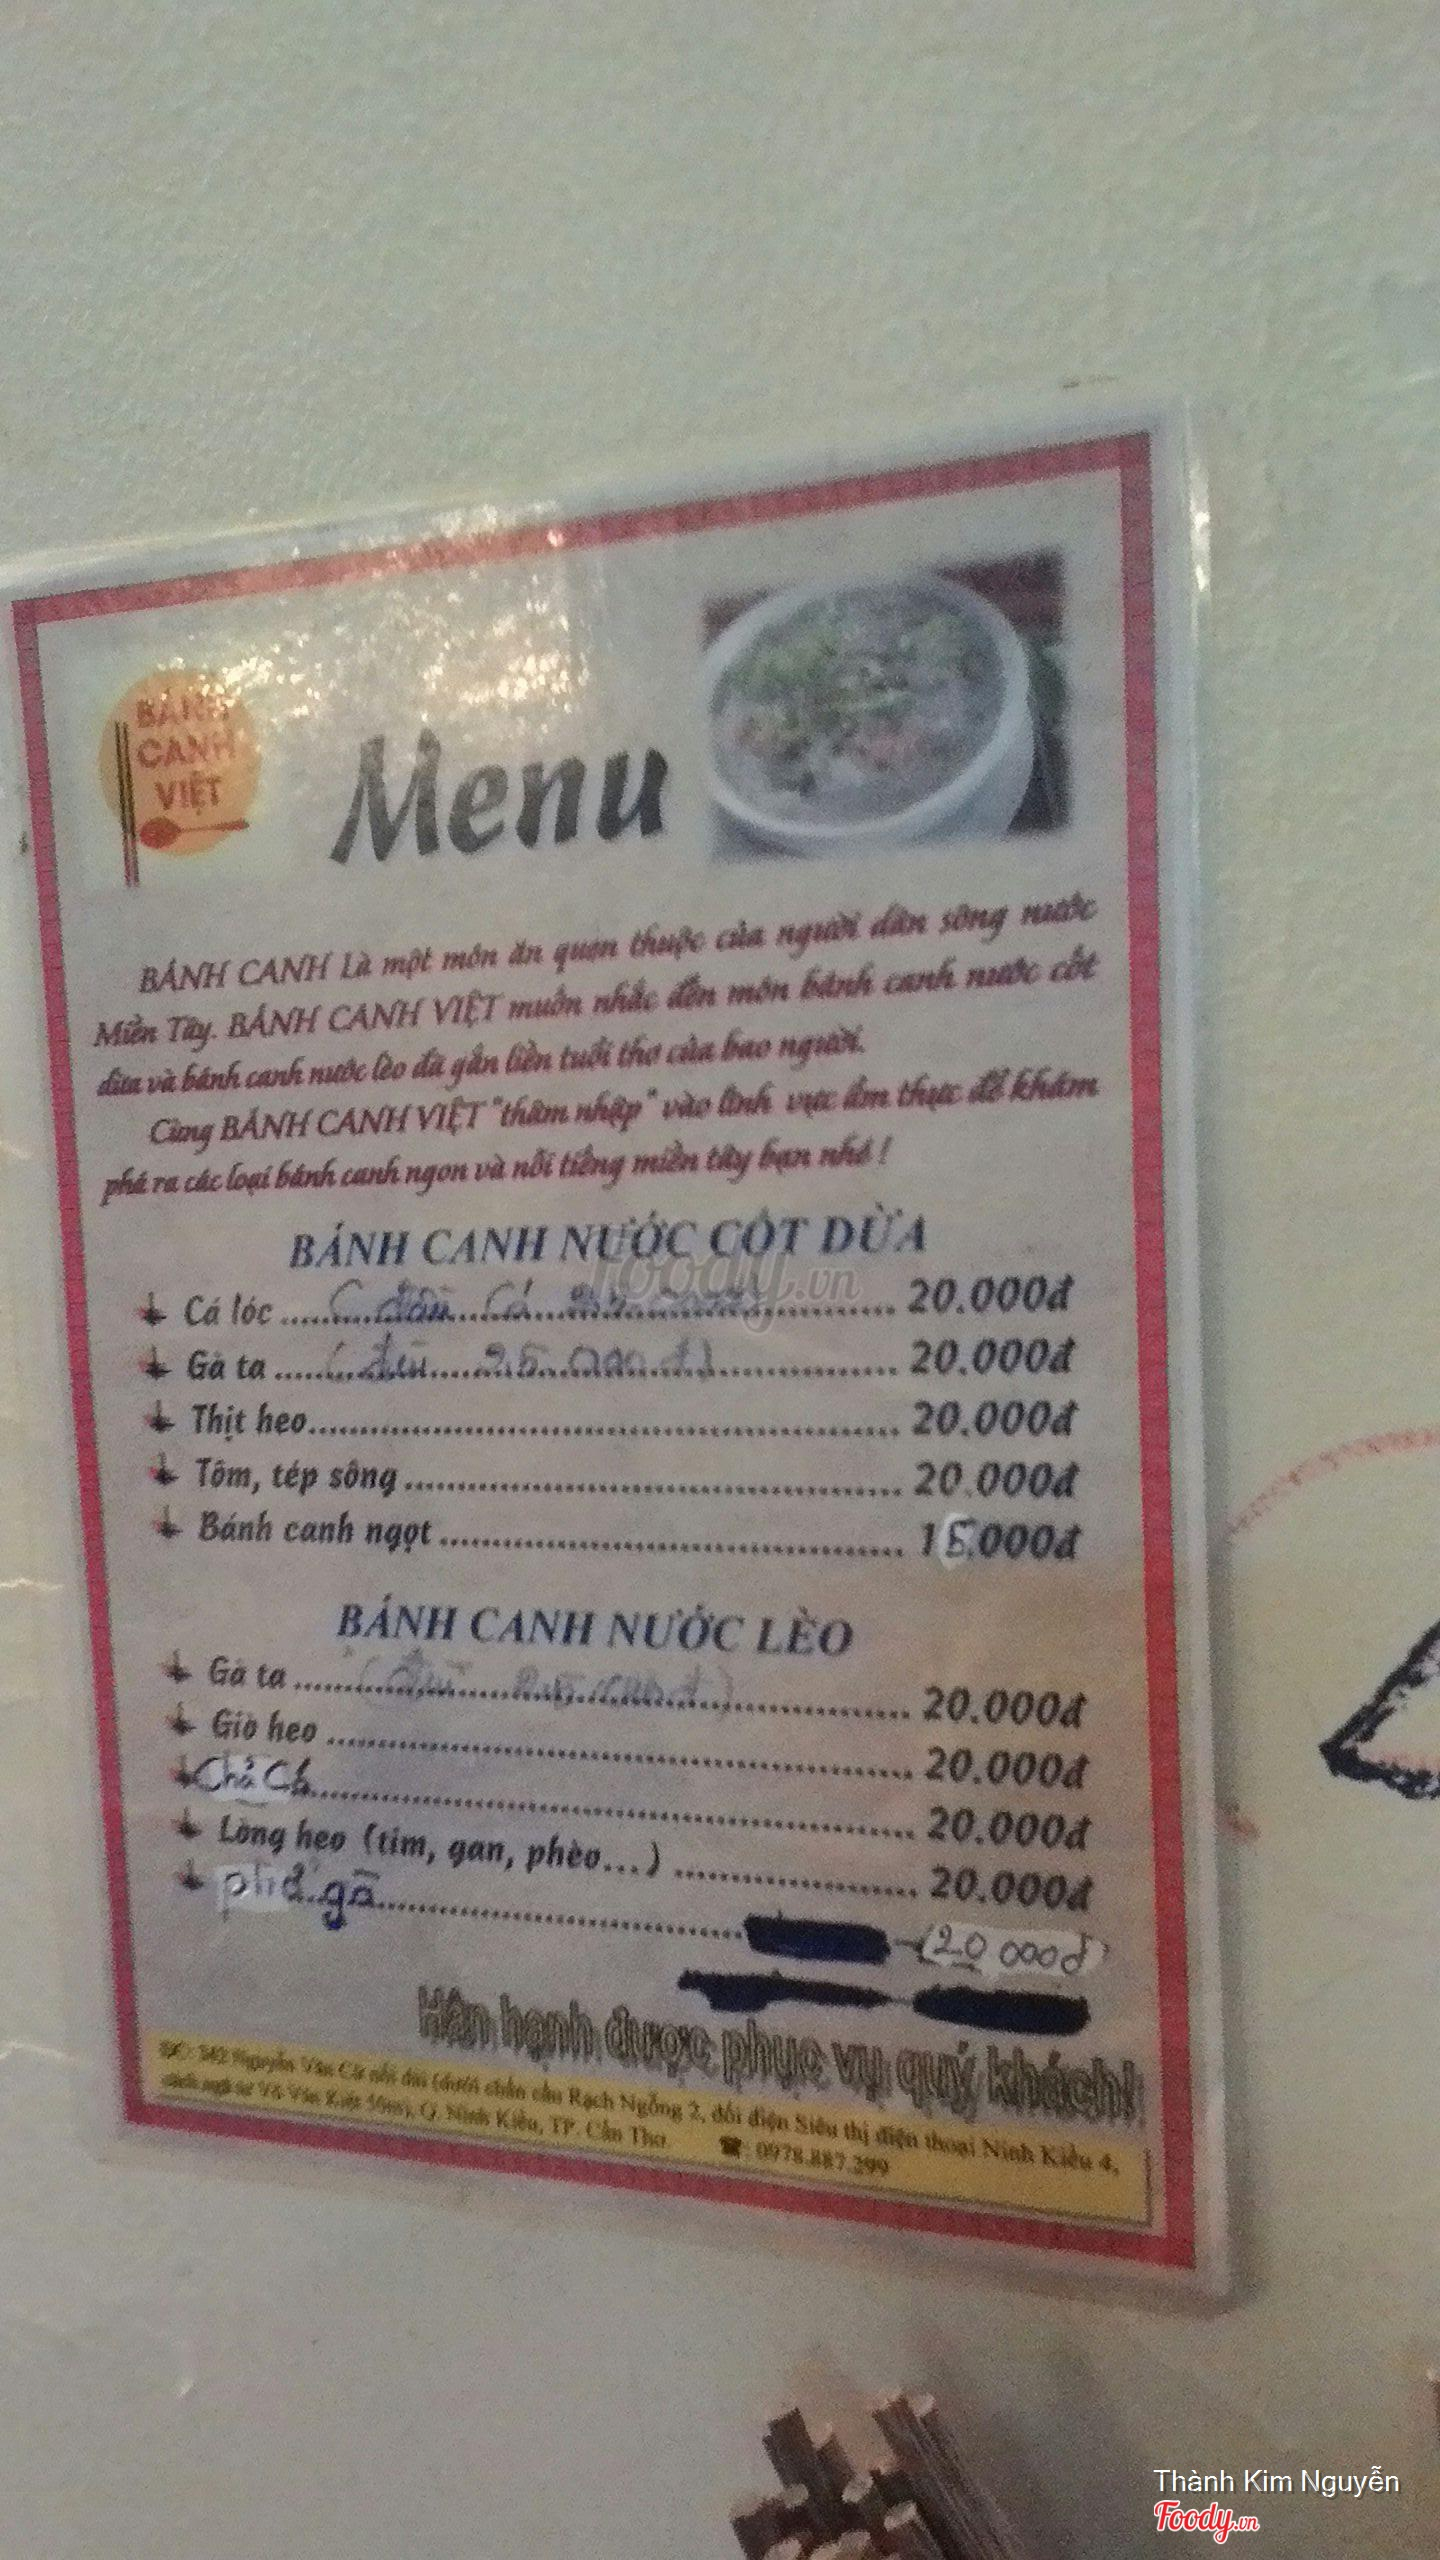 BÁNH
CANH
VIỆT
Menu
BÁNH CANH Là một món ăn quen thuộc của người dân sông nước
Miền Tây. BÁNH CANH VIỆT muốn nhắc đến món bánh canh nước cốt
dừa và bánh canh nước lèo đã gắn liền tuổi thơ của bao người.
Cùng BÁNH CANH VIỆT "thâm nhập" vào lĩnh vực ẩm thực để khám
phá ra các loại bánh canh ngon và nổi tiếng miền tây bạn nhé !
BÁNH CANH NƯỚC CỐT DỪA
Foody.vn
Cá lóc ... (đầu cá 20.000đ
Gà ta ... (đùi 25.000đ) ... 20.000đ
Thịt heo ... 20.000đ
Tôm, tép sông ... 20.000đ
Bánh canh ngọt ... 15.000đ
BÁNH CANH NƯỚC LÈO
Gà ta ... (đùi 25.000đ) ... 20.000đ
Giò heo ... 20.000đ
Chả Cá ... 20.000đ
Lòng heo (tim, gan, phèo...) ... 20.000đ
phở gà ... (20 000đ)
Hân hạnh được phục vụ quý khách!
ĐC: 342 Nguyễn Văn Cừ nối dài (dưới chân cầu Rạch Ngỗng 2, đối diện Siêu thị điện thoại Ninh Kiều 4,
cách ngã tư Võ Văn Kiệt 50m), Q. Ninh Kiều, TP. Cần Thơ ☎: 0978.887.299
Thành Kim Nguyễn
Foody.vn